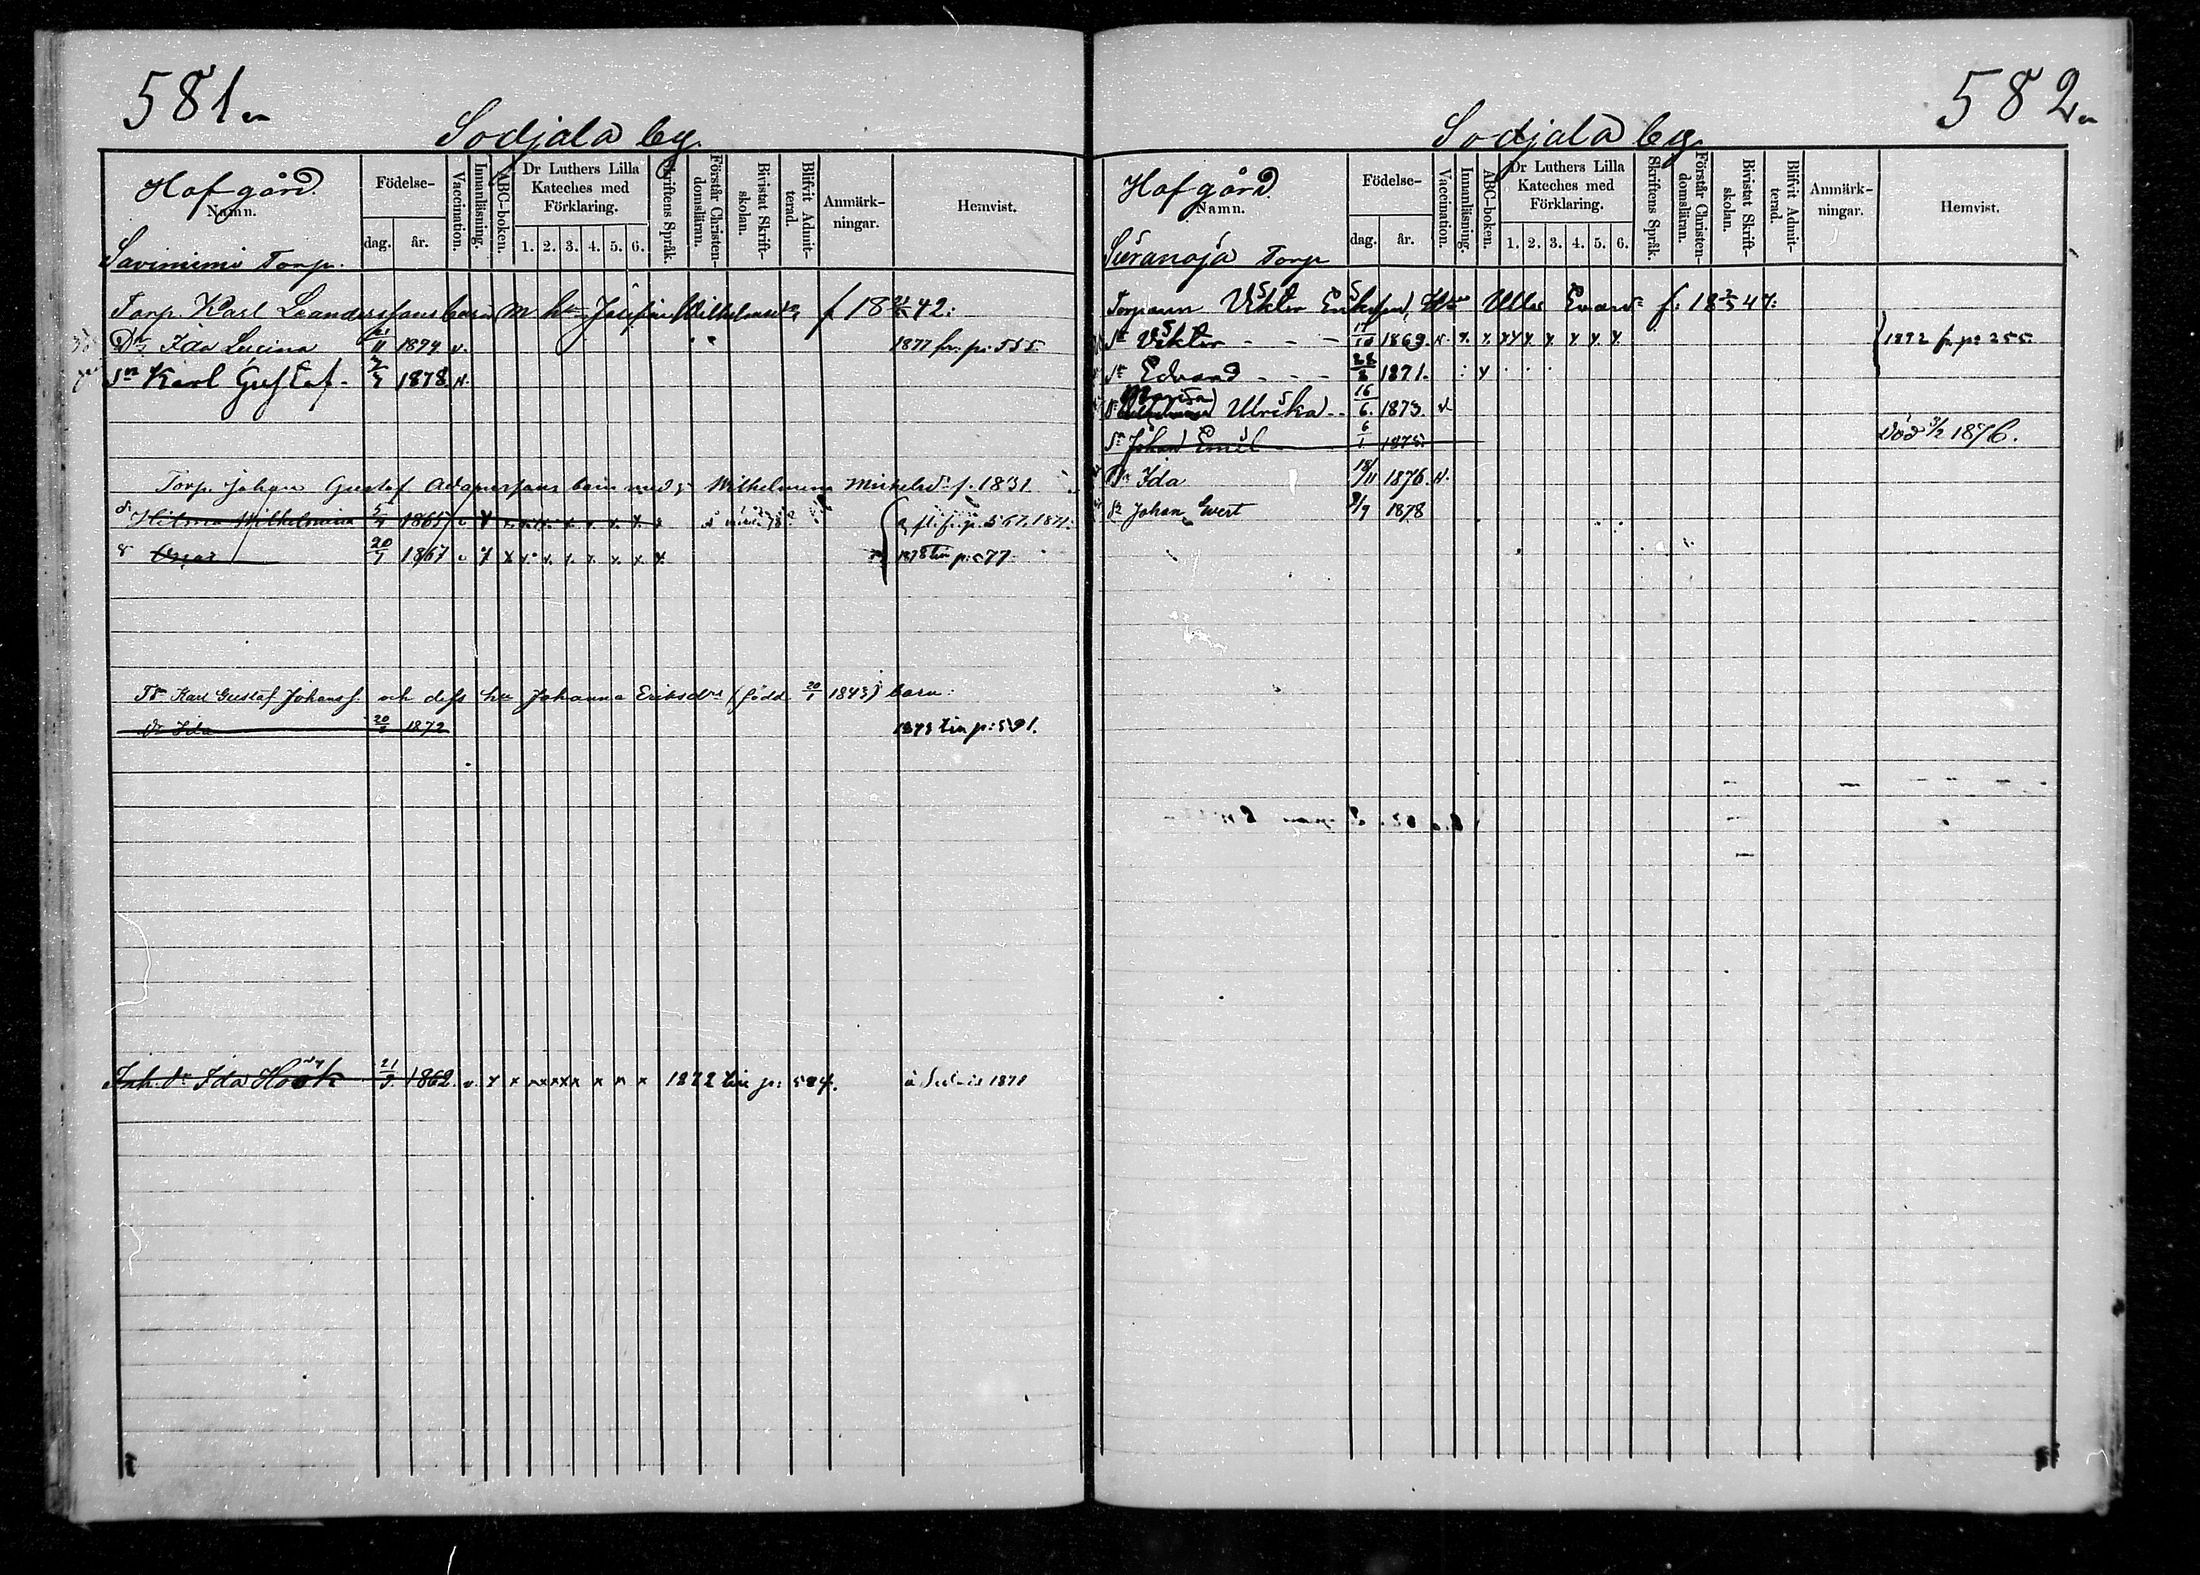 581.
Sodjala by.
Hofgård.
Namn.
Födelse-
dag.
år.
Vaccination.
Innanläsning.
ABC-boken.
Dr Luthers Lilla
Kateches med
Förklaring.
1. 2. 3. 4. 5. 6.
Skriftens Språk.
Förstår Christen-
domsläran.
Bivistat Skrift-
skolan.
Blifvit Admit-
terad.
Anmärk-
ningar.
Hemvist.
Saviniemi Torp.
Torp. Karl Leanderssons barn m h: Josefina Wilhelmina f 18 42:
Dr Ida Lucina 11 1874 v. 1877 fr. p: 555.
Sn Karl Gustaf - 1878 v.
Torp. Johan Gustaf Adamssons barn med Wilhelmina Mickelsdr f. 1831
dr Hilma Wilhelmina 1865 v x fr. p. 567. 1871.
s Oscar 20/7 1867 v x x x x x x x x x 1878 tin p: 577
Karl Gustaf Johanss. och dess hu Johanna Eriksdr (född 20/1 1843) barn:
Dr Ida 20 1872 1873 tin p: 591.
Inh. dr Ida Höök 21/9 1862. v. x x x x x x x x x 1872 tin p: 584. 1871
582.
Sodjala by.
Hofgård.
Namn.
Födelse-
dag.
år.
Vaccination.
Innanläsning.
ABC-boken.
Dr Luthers Lilla
Kateches med
Förklaring.
1. 2. 3. 4. 5. 6.
Skriftens Språk.
Förstår Christen-
domsläran.
Bivistat Skrift-
skolan.
Blifvit Admit-
terad.
Anmärk-
ningar.
Hemvist.
Suranoja Torp
Torpann Viktor Eriksson, Hu Ulla Evardr f: 18 2/5 47:
Sn Viktor - - - 10 1869. v. x x x x x x x x 1872 fr p: 255
Sn Edvard - - - 28/8 1871. x
Maria
Dr Ulrika - - 16/6 1873. v
Sn Johan Emil 6/1 1875 Död 3/2 1876.
Dr Ida 18/11 1876. v.
Sn Johan Evert 9 1878